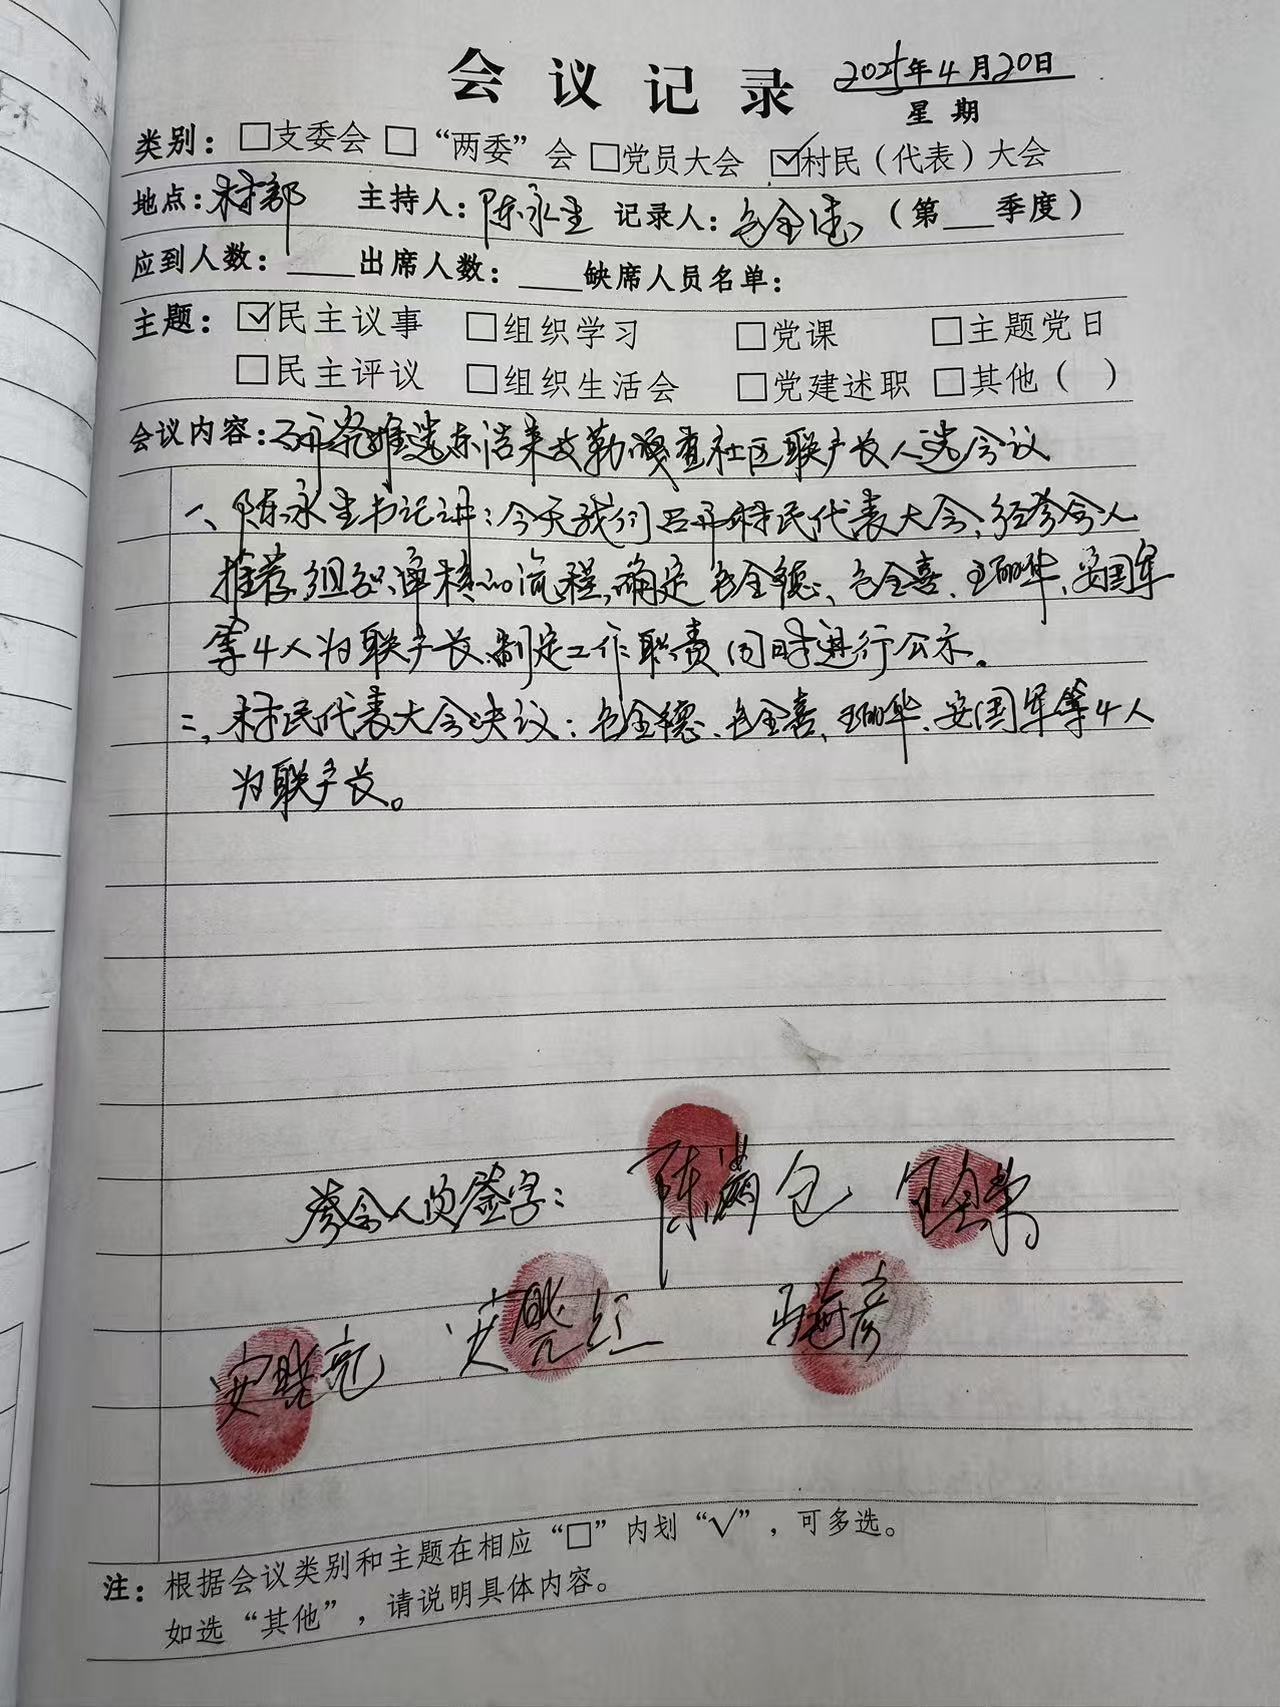 会议记录 2025年4月20日
星期
类别：□支委会 □“两委”会 □党员大会 ☑村民（代表）大会
地点：村部 主持人：陈永生 记录人：包全德（第___季度）
应到人数：____出席人数：____缺席人员名单：
主题：☑民主议事 □组织学习 □党课 □主题党日
□民主评议 □组织生活会 □党建述职 □其他（ ）
会议内容：研究推选东浩来 勒嘎查社区联户长人选会议
一、陈永生书记讲：今天我们召开村民代表大会，经参会人
推荐、组织审核的流程，确定包全德、包全喜、王丽华、安国军
等4人为联户长，制定工作职责同时进行公示。
二、村民代表大会决议：包全德、包全喜、王丽华、安国军等4人
为联户长。
参会人员签字：陈满仓 包全荣
安晓亮
注：根据会议类别和主题在相应“□”内划“√”，可多选。
如选“其他”，请说明具体内容。